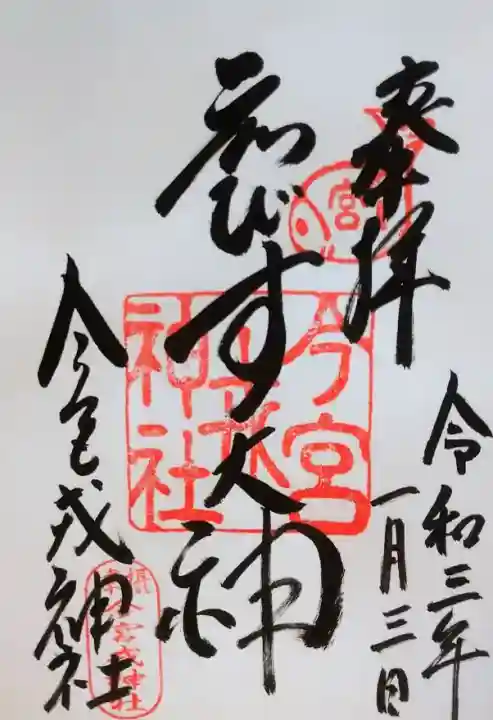 奉拝
令和三年
一月三日
ゑびす大神
今宮戎神社
今宮
戎
神社
宮
今宮戎神社